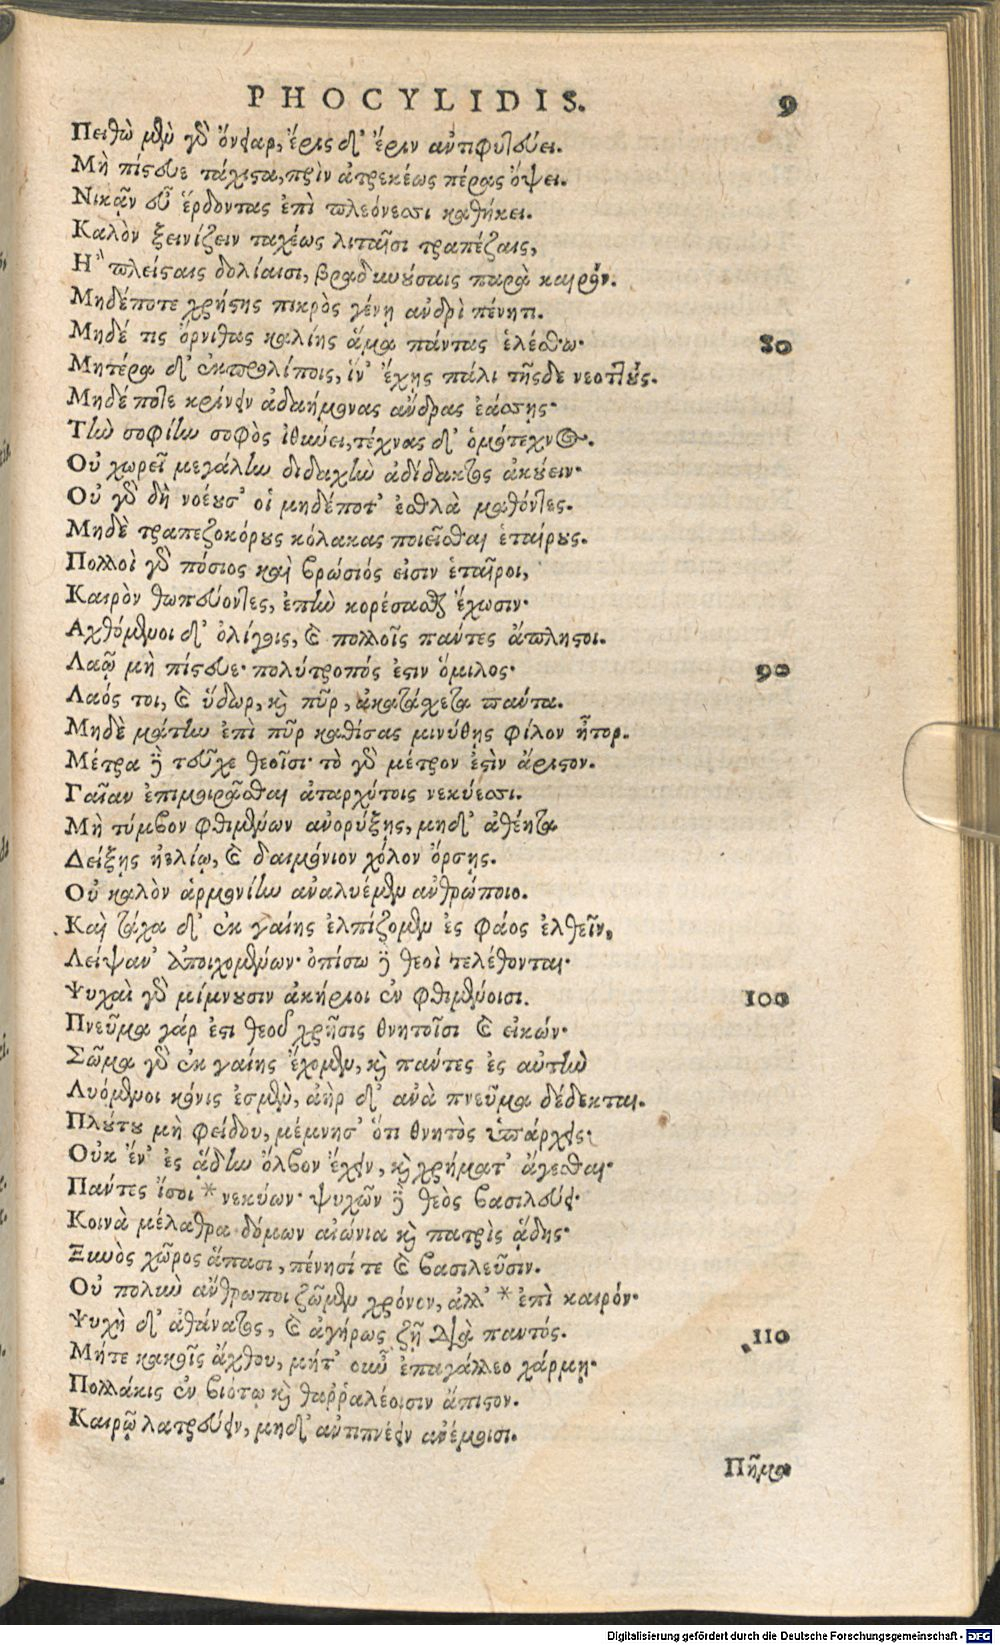 PHOCYLIDIS. 9
Πειθὼ μὲν γὸ ὄνειαρ, ἔρις δ' ἔριν ἀντιφυτεύει.
Μὴ πίςευε τάχιςα, πρὶν ἀτρεκέως πέρας ὄψει.
Νικᾷν εὖ ἕρδοντας ἐπὶ πλεόνεσσι καθήκει.
Καλὸν ξεινίζειν ταχέως λιταῖσι τραπέζαις,
Η᾿ πλείςαις δολίαισι, βραδυνούσαις παρὰ καιρόν.
Μηδέποτε χρήςης πικρὸς γένῃ ἀνδρὶ πένητι.
Μηδέ τις ὄρνιθας καλίης ἅμα πάντας ἑλέσθω· 80
Μητέρα δ' ἐκπρολίποις, ἵν' ἔχῃς πάλι τῆςδε νεοττούς.
Μηδέποτε κρίνειν ἀδαήμονας ἄνδρας ἐάσῃς·
Τὴν σοφίην σοφὸς ἰθύνει, τέχνας δ' ὁμότεχνος.
Οὐ χωρεῖ μεγάλην διδαχὴν ἀδίδακτος ἀκούειν·
Οὐ γὸ δὴ νοέουσ' οἱ μηδέποτ' ἐσθλὰ μαθόντες.
Μηδὲ τραπεζοκόρους κόλακας ποιεῖσθαι ἑταίρους.
Πολλοὶ γὸ πόσιος καὶ βρώσιός εἰσιν ἑταῖροι,
Καιρὸν θωπεύοντες, ἐπὴν κορέσασθαι ἔχωσιν·
Αχθόμενοι δ' ὀλίγοις, καὶ πολλοῖς πάντες ἄπληςοι.
Λαῷ μὴ πίςευε· πολύτροπός ἐςιν ὅμιλος· 90
Λαός τοι, καὶ ὕδωρ, καὶ πῦρ, ἀκατάχετα πάντα.
Μηδὲ μάτην ἐπὶ πῦρ καθίσας μινύθῃς φίλον ἦτορ.
Μέτρα δὲ τεῦχε θεοῖσι· τὸ γὸ μέτρον ἐςὶν ἄριςον.
Γαῖαν ἐπιμοιρᾶσθαι ἀταρχύτοις νεκύεσσι.
Μὴ τύμβον φθιμένων ἀνορύξῃς, μηδ' ἀθέητα
Δείξῃς ἠελίῳ, καὶ δαιμόνιον χόλον ὄρσῃς.
Οὐ καλὸν ἁρμονίην ἀναλυέμεν ἀνθρώποιο.
Καὶ τάχα δ' ἐκ γαίης ἐλπίζομεν ἐς φάος ἐλθεῖν,
Λείψαν' ἀποιχομένων· ὀπίσω δὲ θεοὶ τελέθονται·
Ψυχαὶ γὸ μίμνουσιν ἀκήριοι ἐν φθιμένοισι. 100
Πνεῦμα γάρ ἐςι θεοῦ χρῆσις θνητοῖσι καὶ εἰκών·
Σῶμα γὸ ἐκ γαίης ἔχομεν, καὶ πάντες ἐς αὐτὴν
Λυόμενοι κόνις ἐσμὲν, ἀὴρ δ' ἀνὰ πνεῦμα δέδεκται.
Πλούτου μὴ φείδου, μέμνησ' ὅτι θνητὸς ὑπάρχεις·
Οὐκ ἔν' ἐς ᾅδην ὄλβον ἔχειν, καὶ χρήματ' ἄγεσθαι·
Πάντες ἴσοι * νεκύων· ψυχῶν δὲ θεὸς βασιλεύει·
Κοινὰ μέλαθρα δόμων αἰώνια καὶ πατρὶς ᾅδης·
Ξυνὸς χῶρος ἅπασι, πένησί τε καὶ βασιλεῦσιν.
Οὐ πολὺν ἄνθρωποι ζῶμεν χρόνον, ἀλλ' * ἐπὶ καιρόν·
Ψυχὴ δ' ἀθάνατος, καὶ ἀγήρως ζῇ διὰ παντός. 110
Μήτε κακοῖς ἄχθου, μήτ' οὖν ἐπαγάλλεο χάρμῃ·
Πολλάκις ἐν βιότῳ καὶ θαῤῥαλέοισιν ἄπιςον.
Καιρῷ λατρεύειν, μηδ' ἀντιπνέειν ἀνέμοισι.
Πῆμα
Digitalisierung gefördert durch die Deutsche Forschungsgemeinschaft - DFG